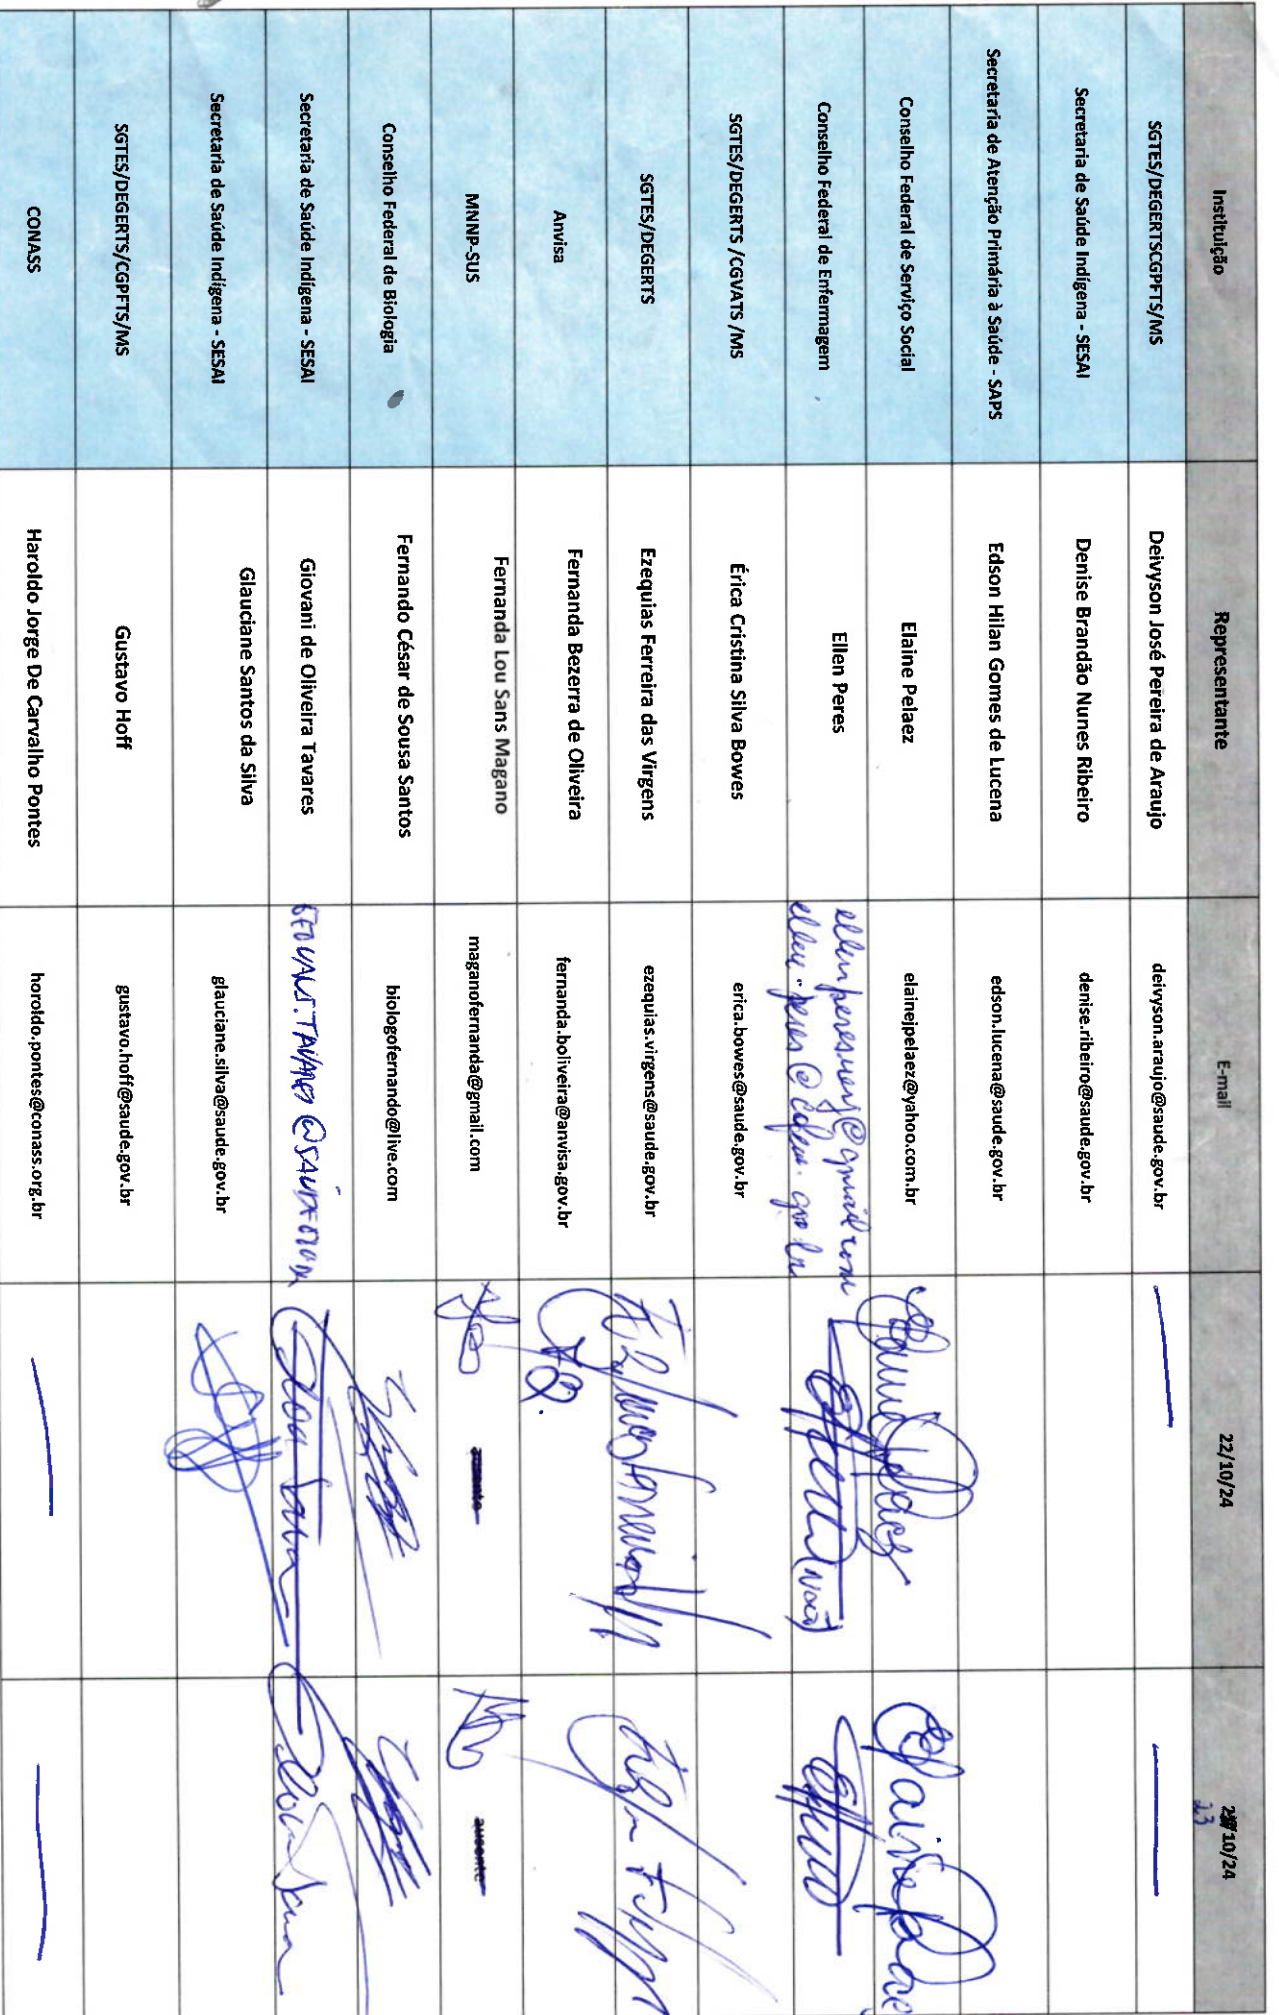 Instituição Representante E-mail 22/10/24 23/10/24
SGTES/DEGERTSCGPFTS/MS Deivyson José Pereira de Araujo deivyson.araujo@saude.gov.br
Secretaria de Saúde Indígena - SESAI Denise Brandão Nunes Ribeiro denise.ribeiro@saude.gov.br
Secretaria de Atenção Primária à Saúde - SAPS Edson Hilan Gomes de Lucena edson.lucena@saude.gov.br
Conselho Federal de Serviço Social Elaine Pelaez elainejpelaez@yahoo.com.br Elaine Pelaez
Conselho Federal de Enfermagem Ellen Peres
SGTES/DEGERTS /CGVATS /MS Érica Cristina Silva Bowes erica.bowes@saude.gov.br
SGTES/DEGERTS Ezequias Ferreira das Virgens ezequias.virgens@saude.gov.br
Anvisa Fernanda Bezerra de Oliveira fernanda.boliveira@anvisa.gov.br
MNNP-SUS Fernanda Lou Sans Magano maganofernanda@gmail.com ausente ausente
Conselho Federal de Biologia Fernando César de Sousa Santos biologofernando@live.com
Secretaria de Saúde Indígena - SESAI Giovani de Oliveira Tavares
Secretaria de Saúde Indígena - SESAI Glauciane Santos da Silva glauciane.silva@saude.gov.br
SGTES/DEGERTS/CGPFTS/MS Gustavo Hoff gustavo.hoff@saude.gov.br
CONASS Haroldo Jorge De Carvalho Pontes horoldo.pontes@conass.org.br